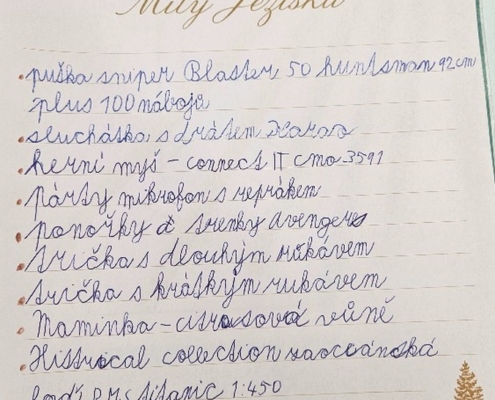 Milý Ježíšku
• puška sniper Blaster 50 huntsman 92cm
plus 100 nábojů
• sluchátka s drátem
• herní myš - connect IT cmo 3591
• párty mikrofon s reprákem
• ponožky a trenky avengers
• trička s dlouhým rukávem
• trička s krátkým rukávem
• Maminka - citrusová vůně
• Histrocal collection zaoceánská
loď R.M.S titanic 1:450